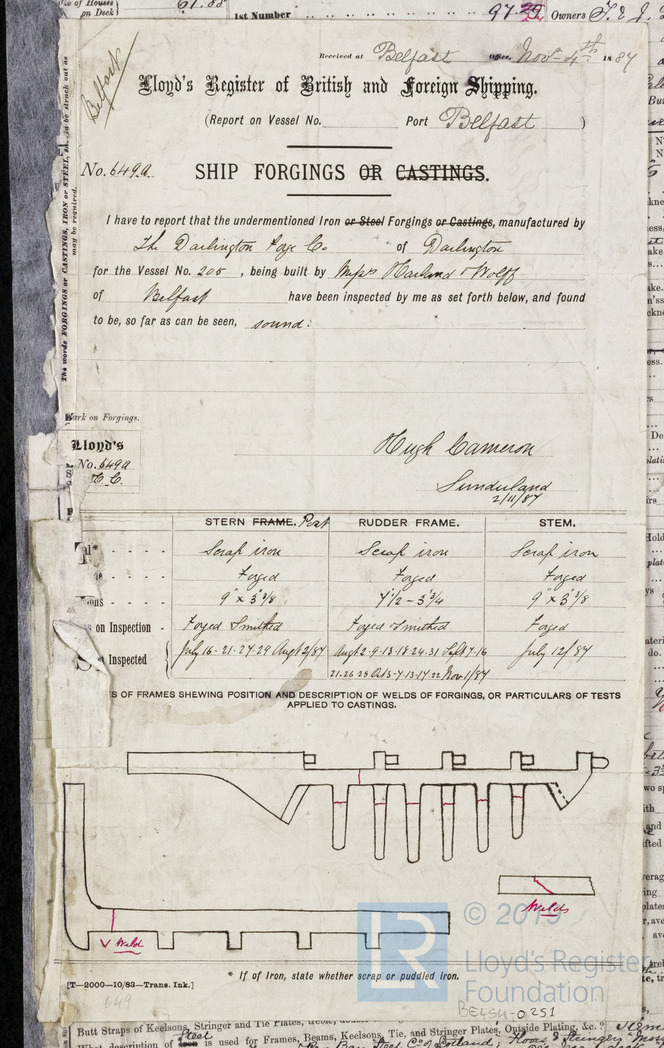 No of Houses
on Deck)
61.88
1st Number
97.29
Owners T. & J.
Belfast
Received at Belfast Office, Novr 4th 1887
Lloyd's Register of British and Foreign Shipping.
(Report on Vessel No. Port Belfast )
No. 649a SHIP FORGINGS OR CASTINGS.
The words FORGINGS or CASTINGS, IRON or STEEL, to be struck out as
may be required.
I have to report that the undermentioned Iron or Steel Forgings or Castings, manufactured by
The Darlington Forge Co. of Darlington
for the Vessel No. 205 , being built by Messrs Harland & Wolff
of Belfast have been inspected by me as set forth below, and found
to be, so far as can be seen, sound.
Mark on Forgings.
Lloyd's
No. 649a
H. C.
Hugh Cameron
Sunderland
2/11/87
STERN FRAME. Post RUDDER FRAME. STEM.
Scrap iron Scrap iron Scrap iron
Forged Forged Forged
9" x 3 3/8 7 1/2 - 3 3/4 9" x 3 3/8
on Inspection Forged & smithed Forged & smithed Forged
Inspected July 16-21-27-29 Augt 2/87 Augt 2-9-13-18 24.31 Sept 7-16 July 12/87
21.26 28 Oct 3-7-13-17 22 Nov 1/87
S OF FRAMES SHEWING POSITION AND DESCRIPTION OF WELDS OF FORGINGS, OR PARTICULARS OF TESTS
APPLIED TO CASTINGS.
Welds
V Weld
* If of Iron, state whether scrap or puddled iron.
[T—2000—10/83—Trans. Ink.]
649
LR
© 2019
Lloyd's Register
Foundation
BELSH-0251
Butt Straps of Keelsons, Stringer and Tie Plates,
Outside Plating, &c. ?
Steel
What description of is used for Frames, Beams, Keelsons, Tie, and Stringer Plates,